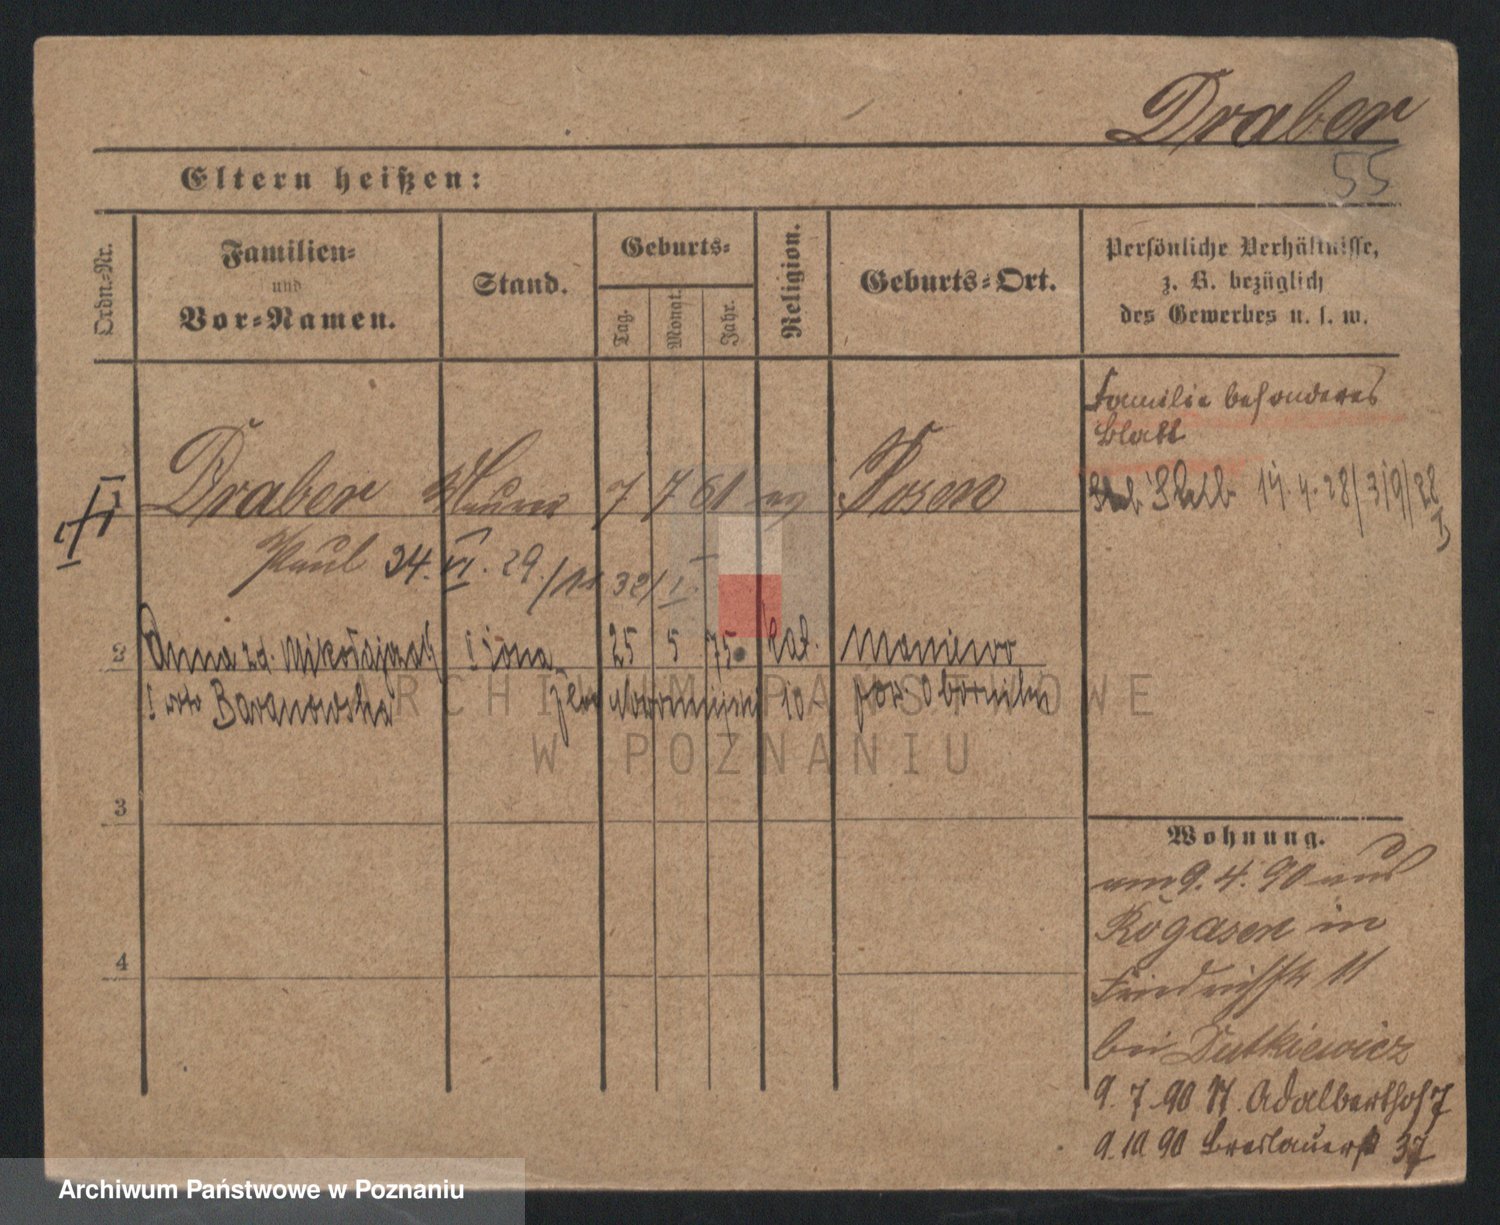 Draber
55
Eltern heißen:
Ordn.-Nr.
Familien-
und
Vor-Namen.
Stand.
Geburts-
Tag.
Monat.
Jahr.
Religion.
Geburts-Ort.
Persönliche Verhältnisse,
z. B. bezüglich
des Gewerbes u. s. w.
Familie besonderes
Blatt
14.4.28/319/28
I
1 Draber 7 7 61 Posen
Paul 24. VI. 29. 32/I
2 Anna zd. Mikołajczak żona 25 5 75. kat. Maniewo
Baranowska 10 pow. Oborniki
3
4
Wohnung.
am 9.4.90 aus
Rogasen in
Friedrichstr 11
bei Dutkiewicz
9.7.90 St. Adalberthof 7
9.10.90 Breslauerst 37
ARCHIWUM PAŃSTWOWE
W POZNANIU
Archiwum Państwowe w Poznaniu